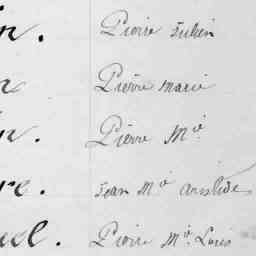 n. Pierre Julien
n Pierre Marie
n. Pierre Mie
re. Jean Mie Aristide
uel. Pierre Mie Louis